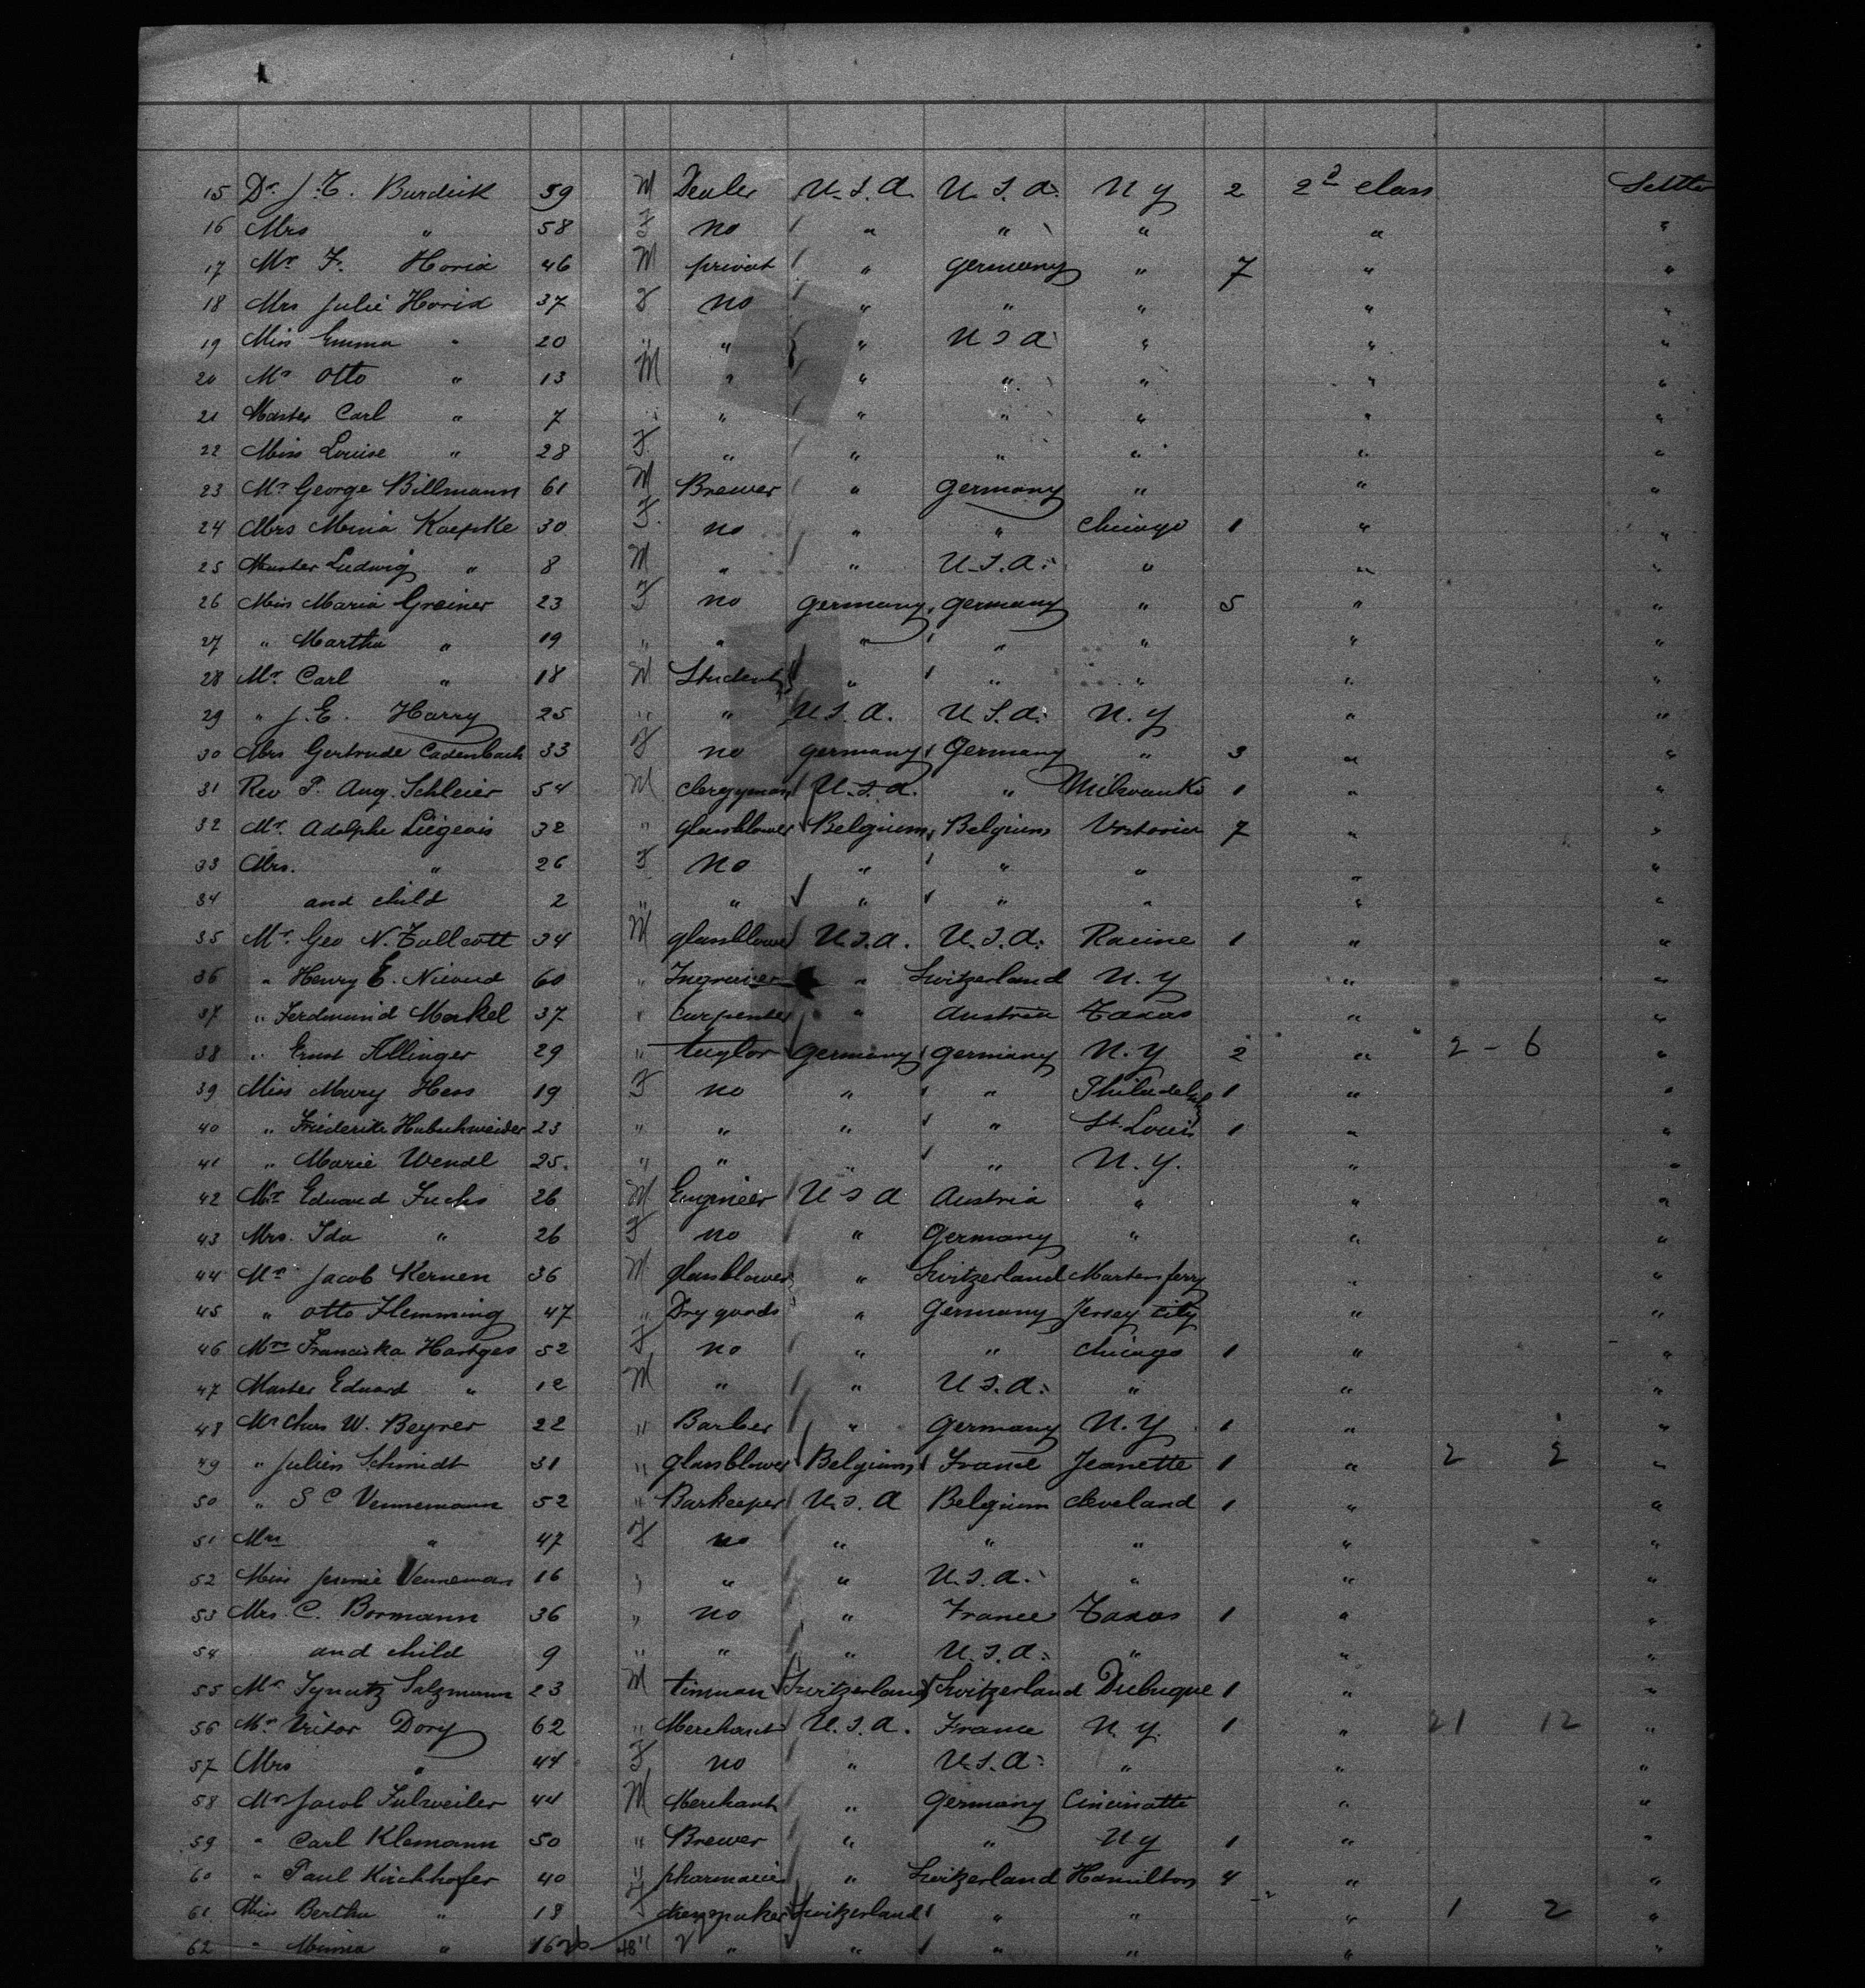 15 Dr. J. T. Burdick 59 M Dealer U.S.A. U.S.A. N Y 2 2d class Settler
16 Mrs " 58 F no " " " " "
17 Mr F. Horix 46 M privat " Germany " 7 " "
18 Mrs Julie Horix 37 F no " " " " "
19 Miss Emma " 20 " " " U S A " " "
20 Mr Otto " 13 M " " " " " "
21 Master Carl " 7 " " " " " " "
22 Miss Louise " 28 F " " " " " "
23 Mr George Billmann 61 M Brewer " Germany " " "
24 Mrs Minia Koepke 30 F. no " " Chicago 1 " "
25 Master Ludwig " 8 M " " U.S.A. " " "
26 Miss Maria Greiner 23 F no Germany Germany " 5 " "
27 " Martha " 19 " " " " " " "
28 Mr. Carl " 18 M Student " " " " "
29 " J. E. Harry 25 " " U.S.A. U.S.A. N. Y " "
30 Mrs Gertrude Cadenbach 33 F no Germany Germany " 3 " "
31 Rev P. Aug. Schleier 54 M Clergyman U.S.A. " Milwauke 1 " "
32 Mr. Adolphe Liégeois 32 " glassblower Belgium Belgium 7 " "
33 Mrs. " 26 F no " " " " "
34 and child 2 " " " " " " "
35 Mr. Geo N. Tallcott 34 M glassblower U.S.A. U.S.A. Racine 1 " "
36 " Henry E. 60 " Ingraver " Switzerland N. Y " "
37 " Ferdinand Merkel 37 " Carpenter " Austria Taxas " "
38 " Ernst Allinger 29 " taylor Germany Germany N. Y 2 " 2 - 6 "
39 Miss Mary Hess 19 F no " " 1 " "
40 " Friederike 23 " " " " St. Louis 1 " "
41 " Marie Wendl 25. " " " " N. Y. " "
42 Mr Eduard Fuchs 26 M Engineer U S A Austria " " "
43 Mrs. Ida " 26 F no " Germany " " "
44 Mr Jacob Kernen 36 M glassblower " Switzerland Martensferry " "
45 " Otto Flemming 47 " Dry goods " Germany Jersey City " "
46 Mrs Franciska Hartges 52 F no " " Chicago 1 " "
47 Master Eduard " 12 M " " U.S.A. " " "
48 Mr Chas W. Beyrer 22 " Barber " Germany N. Y 1 " "
49 " Julien Schmidt 31 " glassblower Belgium France Jeanette 1 " 2 2 "
50 " S C Vennemann 52 " Barkeeper U.S.A Belgium Cleveland 1 " "
51 Mrs " 47 F no " " " " "
52 Miss Jennie Venneman 16 " " " U.S.A. " " "
53 Mrs. C. Bormann 36 " no " France Taxas 1 " "
54 and child 9 " " " U.S.A. " " "
55 Mr Ignatz Salzmann 23 M tinman Switzerland Switzerland Dubuque 1 " "
56 Mr Victor Dory 62 " Merchant U.S.A. France N. Y. 1 " 21 12 "
57 Mrs " 44 F no " U.S.A. " " "
58 Mr Jacob Fulweiler 44 M Merchant " Germany Cincinatte " "
59 " Carl Klemann 50 " Brewer " " N Y 1 " "
60 " Paul Kirchhofer 40 " pharmacie " Switzerland Hamilton 4 " "
61 Miss Bertha " 18 F Switzerland " " " 1 2 "
62 " " 16 48 " " " " " " "